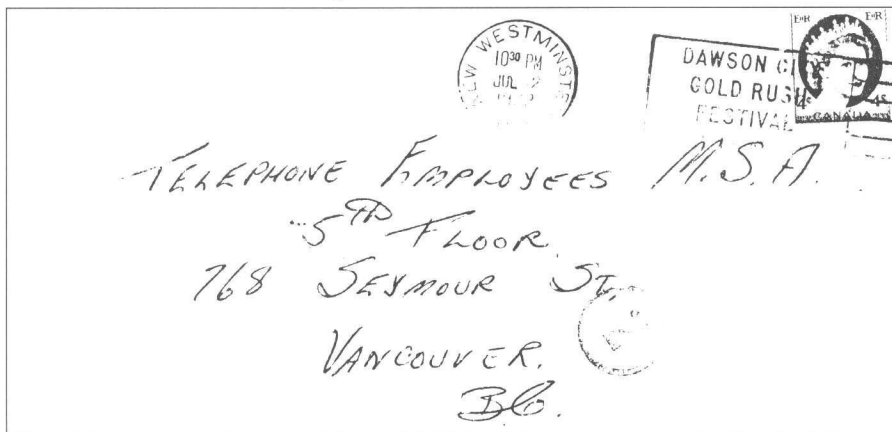 NEW WESTMINSTE
10³⁰ PM
JUL
DAWSON CI
GOLD RUSH
FESTIVAL
EIIR EIIR
4¢ 4¢
CANADA
TELEPHONE EMPLOYEES M.S.A.
5TH FLOOR.
768 SEYMOUR ST.
VANCOUVER.
B.C.